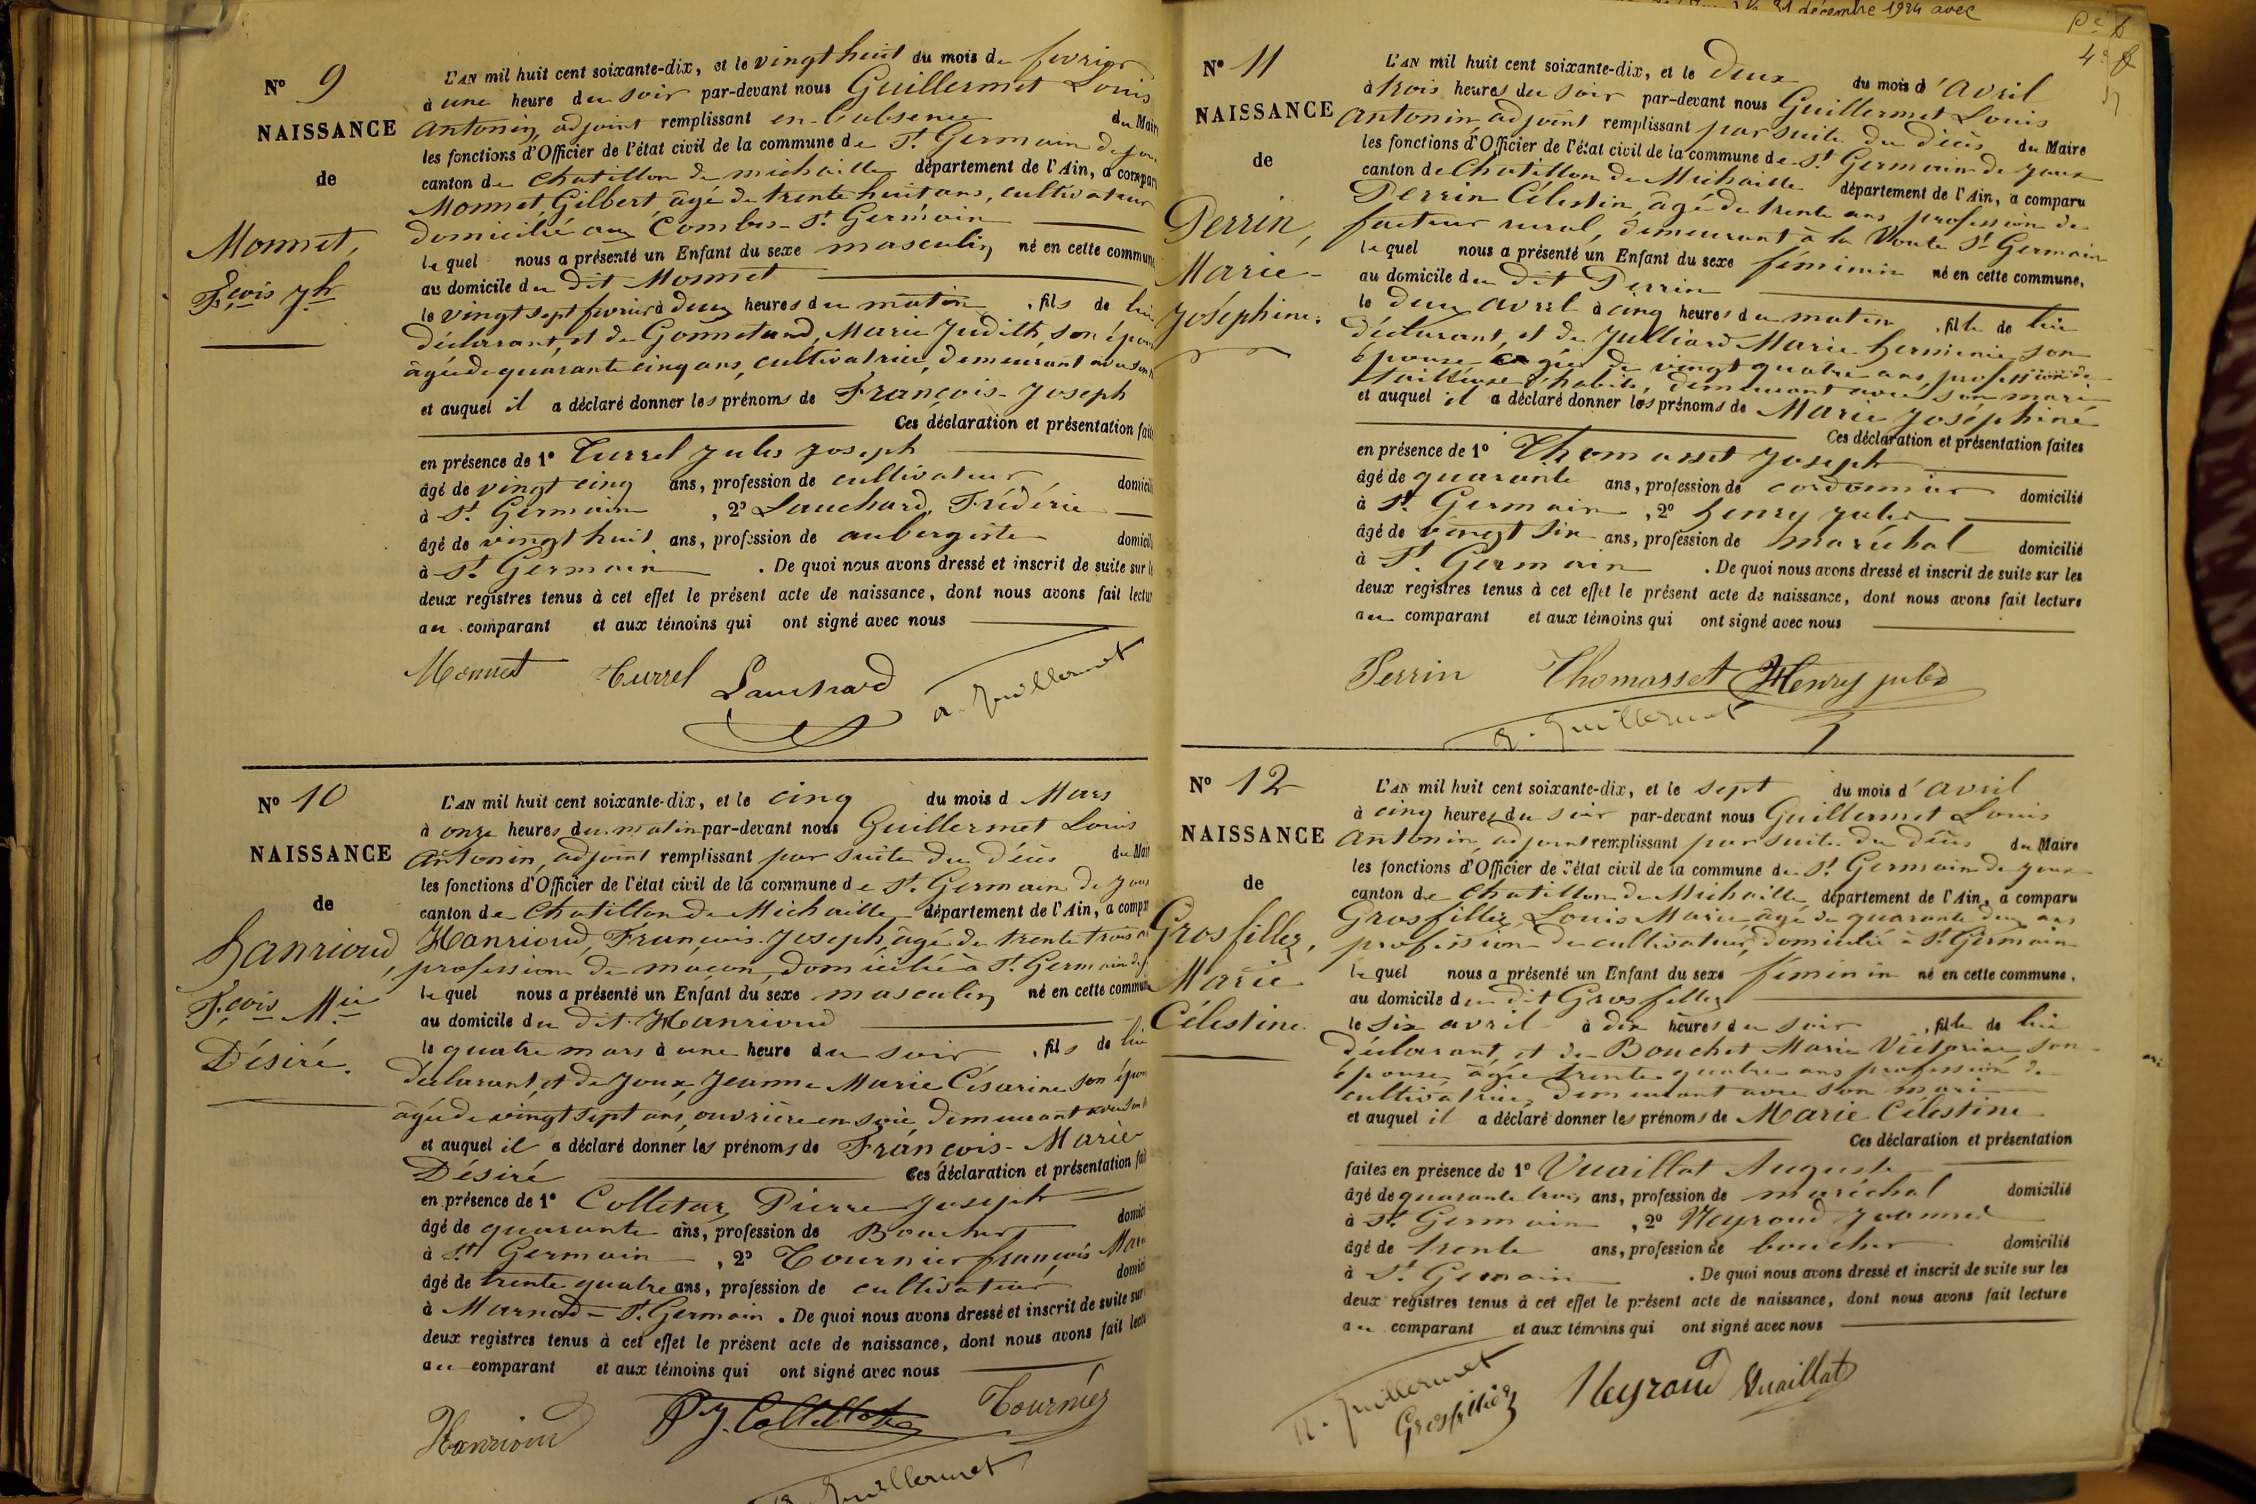 31 décembre 1924 avec
Nº 9
NAISSANCE
de
Monnet,
F.cois J.ph
L'AN mil huit cent soixante-dix, et le vingt huit du mois de fevrier
à une heure du soir par-devant nous Guillermet Louis
Antonin, adjoint remplissant en l'absence du Maire
les fonctions d'Officier de l'état civil de la commune de St. Germain de Joux
canton de Chatillon de michaille département de l'Ain, a compar
Monnet Gilbert âgé de trente huit ans, cultivateur
domicilié aux Combes St. Germain
lequel nous a présenté un Enfant du sexe masculin né en cette commune
au domicile du dit Monnet
le vingt sept fevrier à deux heures du matin, fils de lui
déclarant, et de Gonnetand, Marie Judith, son épouse
âgée de quarante cinq ans, cultivatrice, demeurant avec son
et auquel il a déclaré donner les prénoms de François-Joseph
Ces déclaration et présentation faites
en présence de 1º Turrel Jules Joseph
âgé de vingt cinq ans, profession de cultivateur domicil
à St. Germain, 2º Lauchard, Frédéric
âgé de vingt huit ans, profession de aubergiste domicil
à St. Germain. De quoi nous avons dressé et inscrit de suite sur l
deux registres tenus à cet effet le présent acte de naissance, dont nous avons fait lectur
au comparant et aux témoins qui ont signé avec nous
Monnet Turrel Lauchard a. Guillermet
Nº 10
NAISSANCE
de
hanrioud,
F.cois M.ie
Désiré.
L'AN mil huit cent soixante-dix, et le cinq du mois d Mars
à onze heures du matin par-devant nous Guillermet Louis
Antonin, adjoint remplissant par suite du décès du Mair
les fonctions d'Officier de l'état civil de la commune de St. Germain de Joux
canton de Chatillon de Michaille département de l'Ain, a compar
Hanrioud, François-Joseph, âgé de trente trois ans
profession de maçon, domicilié à St. Germain de J
lequel nous a présenté un Enfant du sexe masculin né en cette commune
au domicile du dit Hanrioud
le quatre mars à une heure du soir, fils de lui
déclarant, et de Joux, Jeanne Marie Césarine son épou
âgée de vingt sept ans, ouvrière en soie, demeurant avec son
et auquel il a déclaré donner les prénoms de François-Marie
Désiré Ces déclaration et présentation fai
en présence de 1º Colletaz Pierre Joseph
âgé de quarante ans, profession de Boucher domici
à St Germain, 2º Tournier françois Marie
âgé de trente quatre ans, profession de cultivateur domici
à Marnod - St. Germain. De quoi nous avons dressé et inscrit de suite sur
deux registres tenus à cet effet le présent acte de naissance, dont nous avons fait lectu
au comparant et aux témoins qui ont signé avec nous
Hanrioud P. J. Colletaz Tournier
a. Guillermet
Nº 11
NAISSANCE
de
Perrin,
Marie-
Joséphine.
L'AN mil huit cent soixante-dix, et le deux du mois d'avril
à trois heures du soir par-devant nous Guillermet Louis
Antonin, adjoint remplissant par suite du décès du Maire
les fonctions d'Officier de l'état civil de la commune de St Germain de Joux
canton de Chatillon de Michaille département de l'Ain, a comparu
Perrin Célestin, âgé de trente ans, profession de
facteur rural, demeurant à la Voute St Germain
lequel nous a présenté un Enfant du sexe féminin né en cette commune,
au domicile du dit Perrin
le deux avril à cinq heures du matin, fille de lui
déclarant, et de Julliard Marie herminie son
épouse âgée de vingt quatre ans, profession de
tailleuse d'habits, demeurant avec son mari
et auquel il a déclaré donner les prénoms de Marie Joséphine
Ces déclaration et présentation faites
en présence de 1º Thomasset Joseph
âgé de quarante ans, profession de cordonnier domicilié
à St. Germain, 2º henry Jules
âgé de vingt six ans, profession de maréchal domicilié
à St. Germain. De quoi nous avons dressé et inscrit de suite sur les
deux registres tenus à cet effet le présent acte de naissance, dont nous avons fait lecture
au comparant et aux témoins qui ont signé avec nous
Perrin Thomasset Henry jules
a. Guillermet
Nº 12
NAISSANCE
de
Grosfillez,
Marie
Célestine.
L'AN mil huit cent soixante-dix, et le sept du mois d'avril
à cinq heures du soir par-devant nous Guillermet Louis
Antonin, adjoint remplissant par suite du décès du Maire
les fonctions d'Officier de l'état civil de la commune de St. Germain de Joux
canton de Chatillon de Michaille département de l'Ain, a comparu
Grosfillez, Louis Marie âgé de quarante deux ans
profession de cultivateur, domicilié à St. Germain
lequel nous a présenté un Enfant du sexe féminin né en cette commune,
au domicile du dit Grosfillez
le six avril à dix heures du soir, fille de lui
déclarant, et de Bouchet Marie Victorine son
épouse âgée trente quatre ans profession de
cultivatrice, demeurant avec son mari
et auquel il a déclaré donner les prénoms de Marie Célestine
Ces déclaration et présentation
faites en présence de 1º Vuaillat Auguste
âgé de quarante trois ans, profession de maréchal domicilié
à St. Germain, 2º Neyroud Joanned
âgé de trente ans, profession de boucher domicilié
à St. Germain. De quoi nous avons dressé et inscrit de suite sur les
deux registres tenus à cet effet le présent acte de naissance, dont nous avons fait lecture
au comparant et aux témoins qui ont signé avec nous
a. Guillermet Grosfillez Neyroud Vuaillat